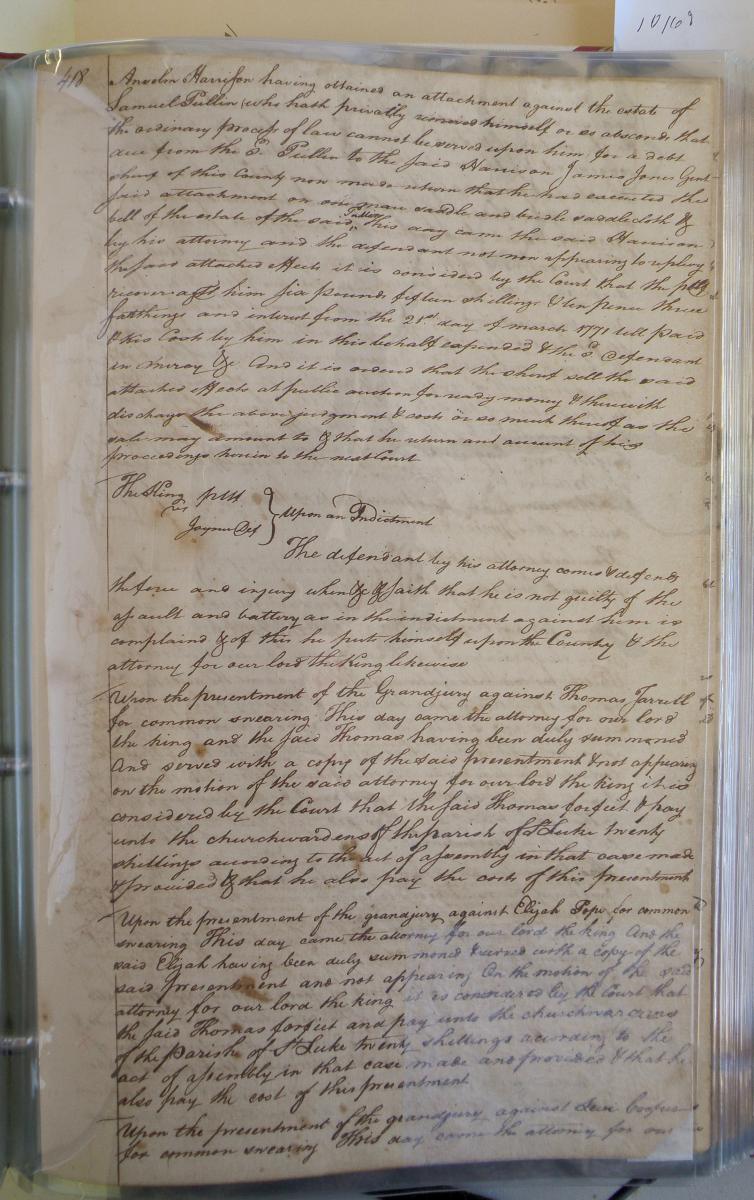 10/69
418
Anselm Harrison having obtained an attachment against the estate of
Samuel Pullin who hath privatly removed himself or so absconds that
the ordinary process of law cannot be served upon him for a debt
due from the sd. Pullin to the said Harrison James Jones Gent
sherif of this County now made return that he had executed the
said attachment on one mare saddle and bridle saddlecloth &
bell of the estate of the said Pullin This day came the said Harrison
by his attorney and the defendant not now appearing to replevy
the said attached effects it is considered by the Court that the pltf
recover agst him six pounds fifteen shillings & ten pence three
farthings and interest from the 21st day of march 1771 till paid
& his Costs by him in this behalf expended & the sd. Defendant
in mercy &c. And it is ordered that the sherif sell the said
attached effects at public auction for ready money & therewith
discharge the above judgment & costs or so much thereof as the
sale may amount to & that he return and account of his
proceedings herein to the next Court
The King pltf
vs
Joyner Def
Upon an Indictment
The defendant by his attorney comes & defends
the force and injury when &c & saith that he is not guilty of the
assault and battery as in the indictment against him is
complaind & of this he puts himself upon the County & the
attorney for our lord the King likewise
Upon the presentment of the Grandjury against Thomas Jarrell
for common swearing This day came the attorney for our lord
the king and the said Thomas having been duly summoned
And served with a copy of the said presentment & not appearing
on the motion of the said attorney for our lord the king it is
considered by the Court that the said Thomas forfeit & pay
unto the churchwardens of the parish of St Luke twenty
shillings according to the act of assembly in that case made
& provided & that he also pay the costs of this presentment
Upon the presentment of the grandjury against Elijah Pope for common
swearing This day came the attorney for our lord the king And the
said Elijah having been duly summoned & served with a copy of the
said presentment and not appearing On the motion of the said
attorney for our lord the king it is considered by the Court that
the said Thomas forfeit and pay unto the churchwardens
of the parish of St Luke twenty shillings according to the
act of assembly in that case made and provided & that he
also pay the cost of this presentment
Upon the presentment of the grandjury against
for common swearing This day came the attorney for our